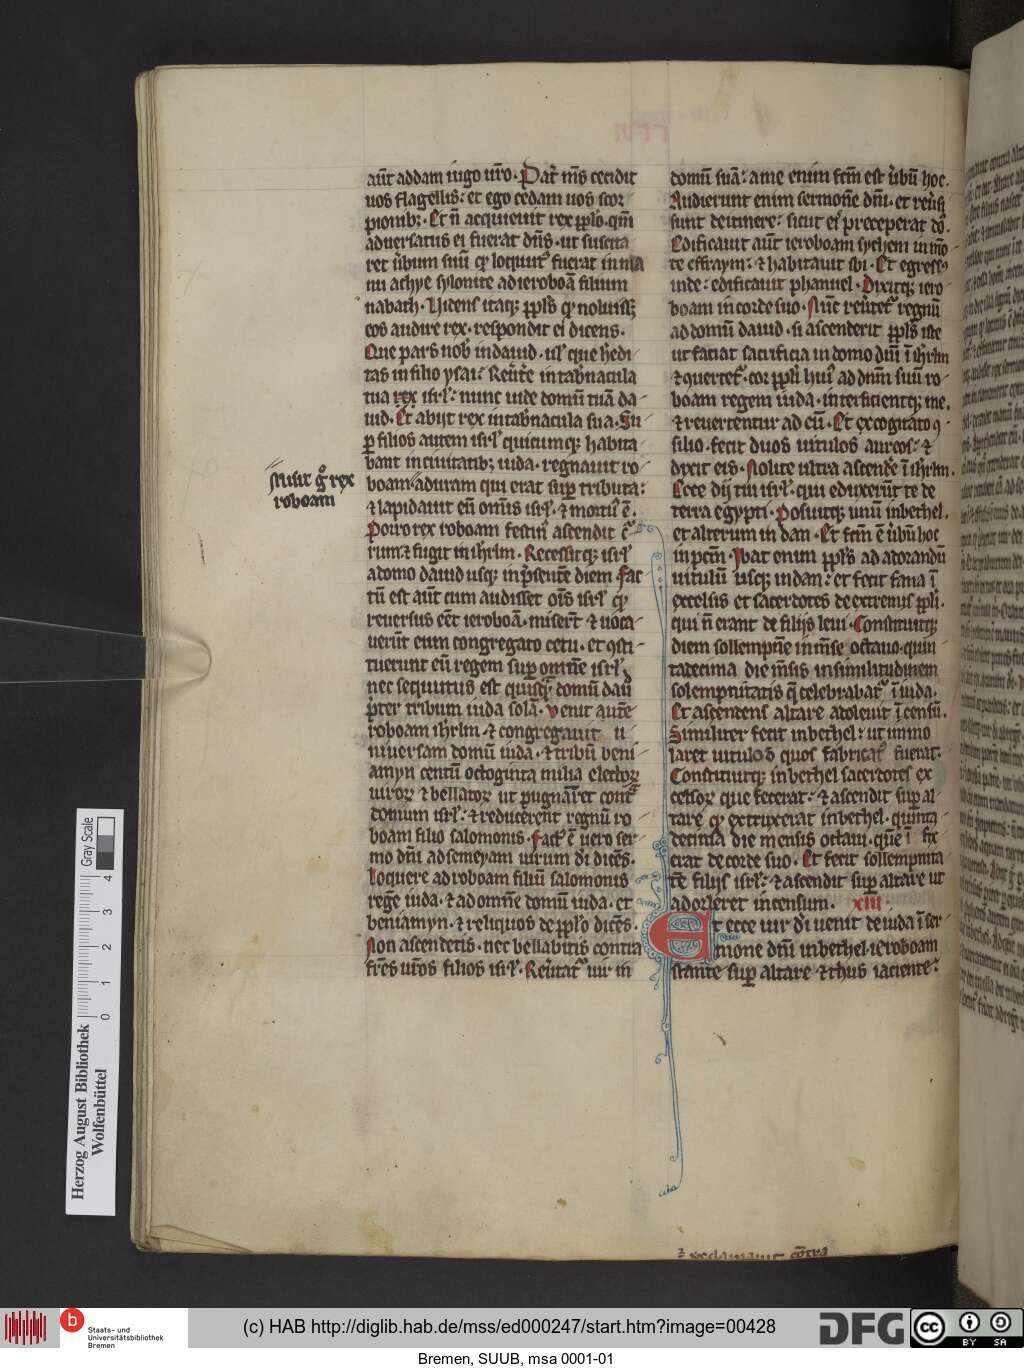 aūt addam iugo ur̄o. Pat̓ ms̄ cecidit
uos flagellis: et ego cedam uos scor
pionib;. Et n̄ acquieuit rex pp̄lo. qm̄
aduersatus ei fuerat dn̄s. ut suscita
ret ūbum suū qď locutꝰ fuerat in ma
nu achye sylonite ad ieroboā filium
nabath. Videns itaq; pp̄ls qď noluiss;
eos audire rex. respondit ei dicens.
Que pars nob̄ in dauid. ul̓ que hedi
tas in filio ysai: Reūte in tab̄nacula
tua rex isrl̓: nunc uide domū tuā da
uid. Et abijt rex in tab̄nacula sua. Su
ꝑ filios autem isrl̓ quicumq; habita
bant in ciuitatib; iuda. regnauit ro
boam. aduram qui erat suꝑ tributa:
⁊ lapidauit eū om̄is isrl̓. ⁊ mortuꝰ ē.
Porro rex roboam festinꝰ ascendit c̄
rum ⁊ fugit in ihrl̄m. Recessitq; isrl̓
a domo dauid usq; in p̄sente diem. Fac
tū est aūt cum audisset om̄s isrl̓ qď
reuersus eēt ieroboā. miser̄t ⁊ uoca
uerūt eum congregato cetu. et ꝯsti
tuerunt eū regem suꝑ omne isrl̓.
nec sequutus est quisq̄ domū dauid
p̄ter tribum iuda solā. Venit autē
roboam ihrl̄m. ⁊ congregauit u
niuersam domū iuda. ⁊ tribū beni
amyn centū octoginta milia electoꝝ
uiroꝝ ⁊ bellatoꝝ ut pugnarēt cont̄
domum isrl̓: ⁊ reducerent regnū ro
boam filio salomonis. Factꝰ ē uero ser
mo dn̄i ad semeyam uirum di dicēs.
Loquere ad roboam filiū salomonis
regē iuda. ⁊ ad omne domū iuda. et
beniamyn. ⁊ reliquos de pp̄lo dicēs.
Non ascendetis. nec bellabitis contra
fr̄es ur̄os filios isrl̓. Reūtat̓ uir in
misit g̊ rex
roboam
domū suā: a me enim fcm̄ est ūbū hoc.
Audierunt enim sermonē dn̄i. et reūsi
sunt de itinere: sicut eis preceperat dn̄s.
Edificauit aūt ieroboam sychem in mō
te effraym: ⁊ habitauit ibi. Et egressꝰ
inde: edificauit phanuel. Dixitq; iero
boam in corde suo. Nūc reūtet̓ regnū
ad domū dauid. si ascenderit pp̄ls iste
ut faciat sacrificia in domo dn̄i ī ihrl̄m
⁊ ꝯuertet̓. cor pp̄li huiꝰ ad dnm̄ suū ro
boam regem iuda. interficientq; me.
⁊ reuertentur ad eū. Et excogitato ꝯ
silio. fecit duos uitulos aureos: ⁊
dixit eis. Nolite ultra ascende ī ihrl̄m.
Ecce dij tui isrl̓. qui eduxerūt te de
terra egypti. Posuitq; unū in bethel.
et alterum in dan. Et fcm̄ ē ūbū hoc
in pctm̄. Ibat enim pp̄ls ad adorandū
uitulū usq; in dan: et fecit fana ī
excelsis et sacerdotes de extremis pp̄li.
qui n̄ erant de filijs leui. Constituitq;
diem sollempne in mse octauo. quin
tadecima die msis in similitudinem
solempnitatis q̄ celebrabat̓ ī iuda.
Et ascendens altare adoleuit ī censū.
Similiter fecit in bethel: ut immo
laret uitulis quos fabricatꝰ fuerat.
Constituitq; in bethel sacerdotes ex
celsoꝝ que fecerat: ⁊ ascendit suꝑ al
tare qď extruxerat in bethel. quinta
decima die mensis octaui. que ī fix
erat de corde suo. Et fecit sollempnita
tē filijs isrl̓: ⁊ ascendit suꝑ altare ut
adorleret incensum. XIII
Et ecce uir di uenit de iuda ī ser
mone dn̄i in bethel. ieroboam
stante suꝑ altare ⁊ thus iaciente.
Gray Scale
Herzog August Bibliothek
Wolfenbüttel
0 1 2 3 4
b Staats- und
Universitätsbibliothek
Bremen
(c) HAB http://diglib.hab.de/mss/ed000247/start.htm?image=00428
DFG
cc BY SA
Bremen, SUUB, msa 0001-01